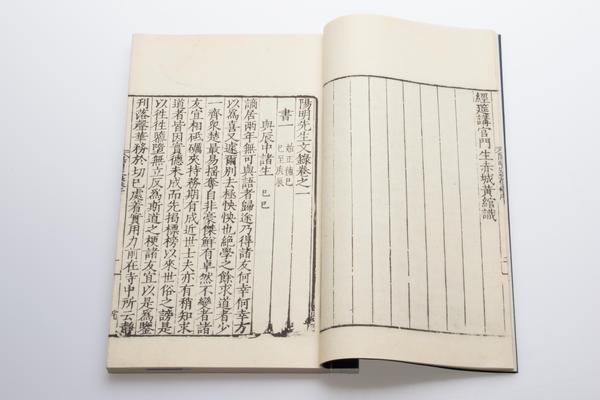 經筵講官門生赤城黃綰識
陽明先生文錄卷之一
書一 始正德己巳至庚辰
與辰中諸生 己巳
謫居兩年無可與語者歸途乃得諸友何幸何幸方
以爲喜又遽爾別去極怏怏也絕學之餘求道者少
一齊衆楚最易搖奪自非豪傑鮮有卓然不變者諸
友宜相砥礪夾持務期有成近世士夫亦有稍知求
道者皆因實德未成而先揭標榜以來世俗之謗是
以往往隳墮無立反爲斯道之梗諸友宜以是爲鑒
刋落聲華務於切己處着實用力前在寺中所云靜